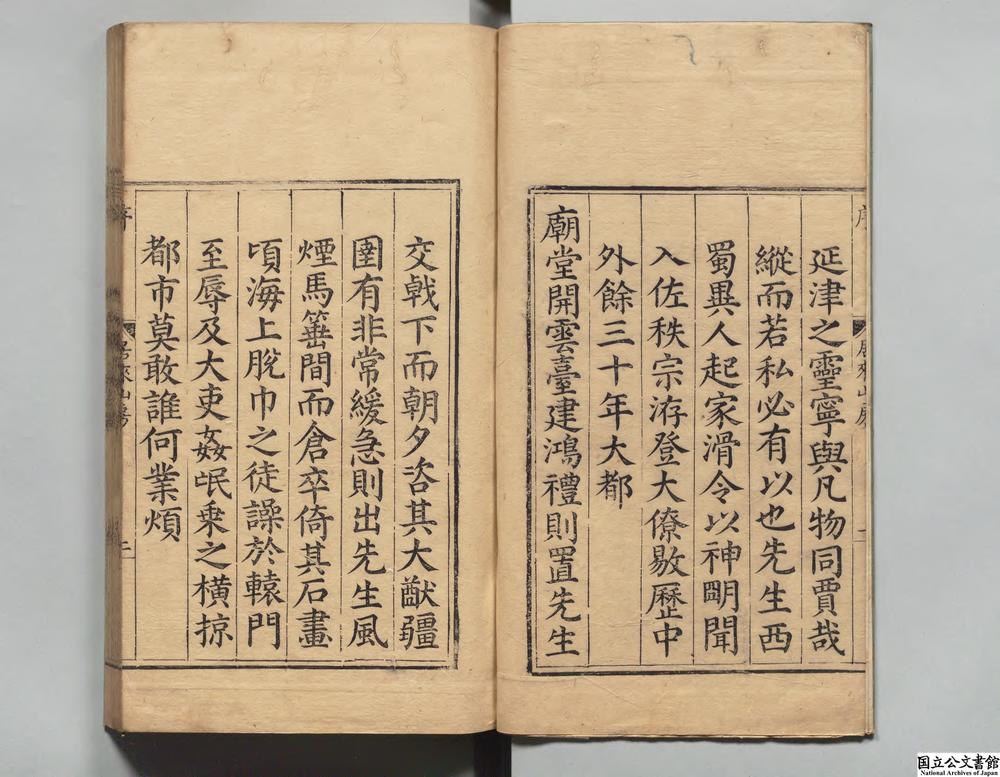 延津之靈寧與凡物同賈哉
縱而若私必有以也先生西
蜀異人起家滑令以神明聞
入佐秩宗洊登大僚敭歷中
外餘三十年大都
廟堂開雲臺建鴻禮則置先生
序
居來山房
二
交戟下而朝夕咨其大猷疆
圉有非常緩急則出先生風
煙馬箠間而倉卒倚其石畫
頃海上脫巾之徒譟於轅門
至辱及大吏姦氓乗之橫掠
都市莫敢誰何業煩
国立公文書館
National Archives of Japan